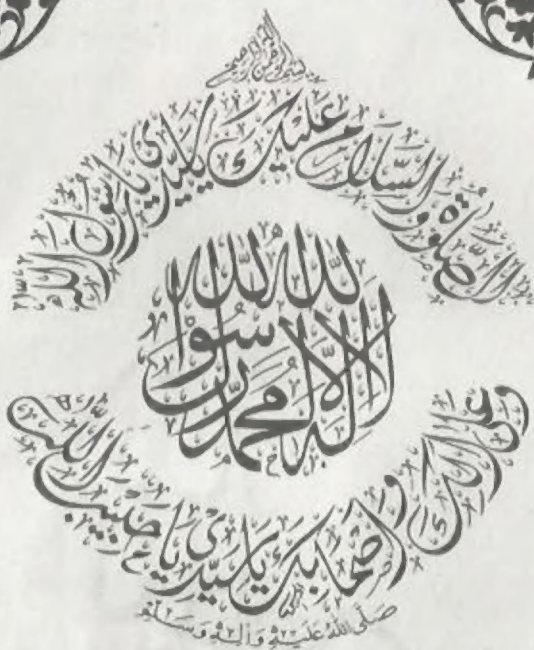 بسم الله الرحمن الرحيم
الصلوٰة والسلام عليك يا سيدي يا رسول الله
لا اله الا الله محمد رسول الله
وعلى الك واصحابك يا سيدي يا حبيب الله
صلى الله عليه واله وسلم